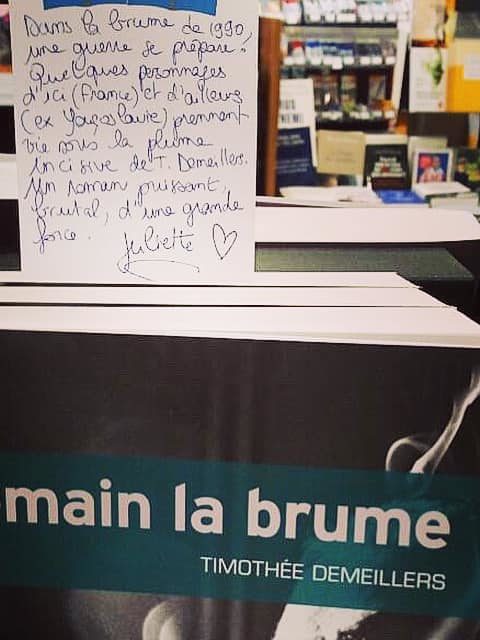 Dans la brume de 1990,
une guerre se prépare.
Quelques personnages
d'ici (France) et d'ailleurs
(ex Yougoslavie) prennent
vie sous la plume
incisive de T. Demeillers.
Un roman puissant,
brutal, d'une grande
force.
Juliette ♡
main la brume
TIMOTHÉE DEMEILLERS